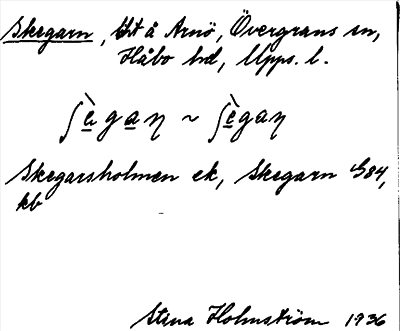 Skegarn, tht å Arnö, Övergrans sn,
Håbo hd, Upps. l.
ʃὲgaŋ ~ ʃègaŋ
Skegarsholmen ek, Skegarn G84,
kb
Stina Holmström 1936